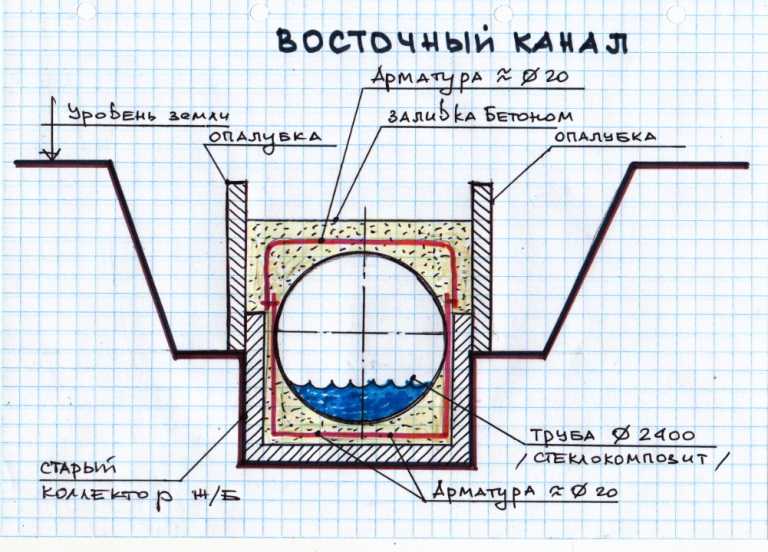 ВОСТОЧНЫЙ КАНАЛ
Арматура ≈ Ø 20
Уровень земли
ЗАЛИВКА БЕТОНОМ
ОПАЛУБКА
ОПАЛУБКА
ТРУБА Ø 2400
/СТЕКЛОКОМПОЗИТ/
СТАРЫЙ
КОЛЛЕКТОР Ж/Б
Арматура ≈ Ø 20